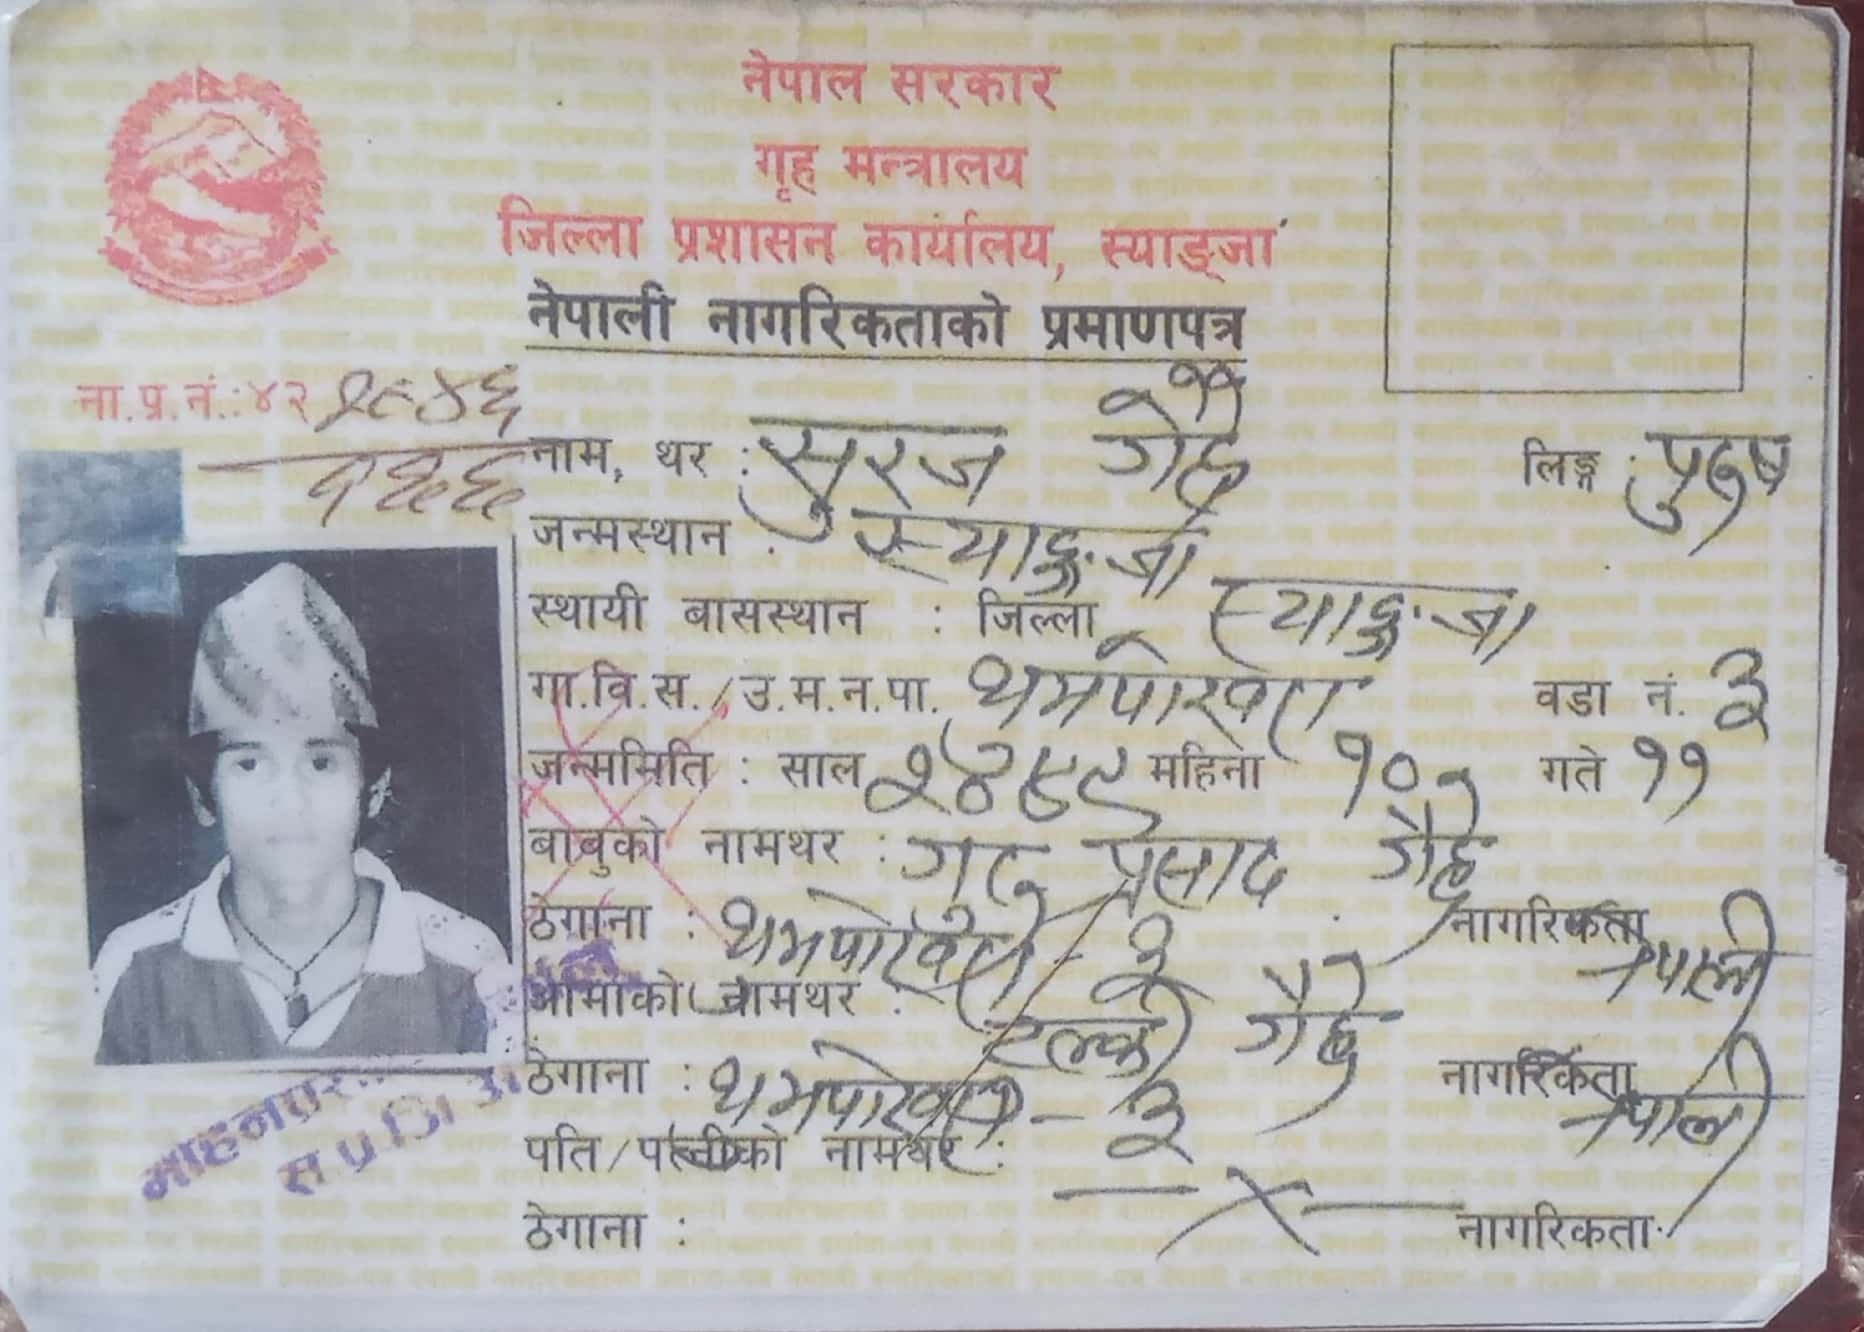 नेपाल सरकार
गृह मन्त्रालय
जिल्ला प्रशासन कार्यालय, स्याङ्जा
नेपाली नागरिकताको प्रमाणपत्र
ना.प्र.नं.:४२
नाम, थर : सुरज गैह्रे लिङ्ग : पुरुष
जन्मस्थान : स्याङ्जा
स्थायी बासस्थान : जिल्ला स्याङ्जा
गा.वि.स./उ.म.न.पा. थुमपोखरा वडा नं. ३
जन्ममिति : साल २०४९ महिना १० गते ११
बाबुको नामथर : गुरु प्रसाद गैह्रे
ठेगाना : थुमपोखरा - ३ नागरिकता नेपाली
आमाको नामथर : गैह्रे
ठेगाना : थुमपोखरा - ३ नागरिकता नेपाली
पति/पत्नीको नामथर :
ठेगाना : नागरिकता
स.प्र.जि.अ.